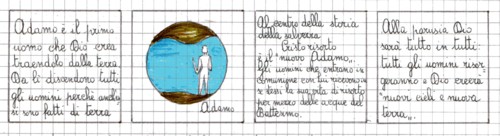 Adamo è il primo
uomo che Dio crea
traendolo dalla terra.
Da lì discendono tutti
gli uomini perché anche
si sono fatti di terra
Adamo
Al centro della storia
della salvezza
Cristo risorto
è il "nuovo Adamo",
gli uomini che entrano in
comunione con lui ricevono in
se stessi la sua vita di risorto
per mezzo delle acque del
Battesimo.
Alla parusia Dio
sarà tutto in tutti:
tutti gli uomini risor=
geranno e Dio creerà
"nuovi cieli e nuova
terra".